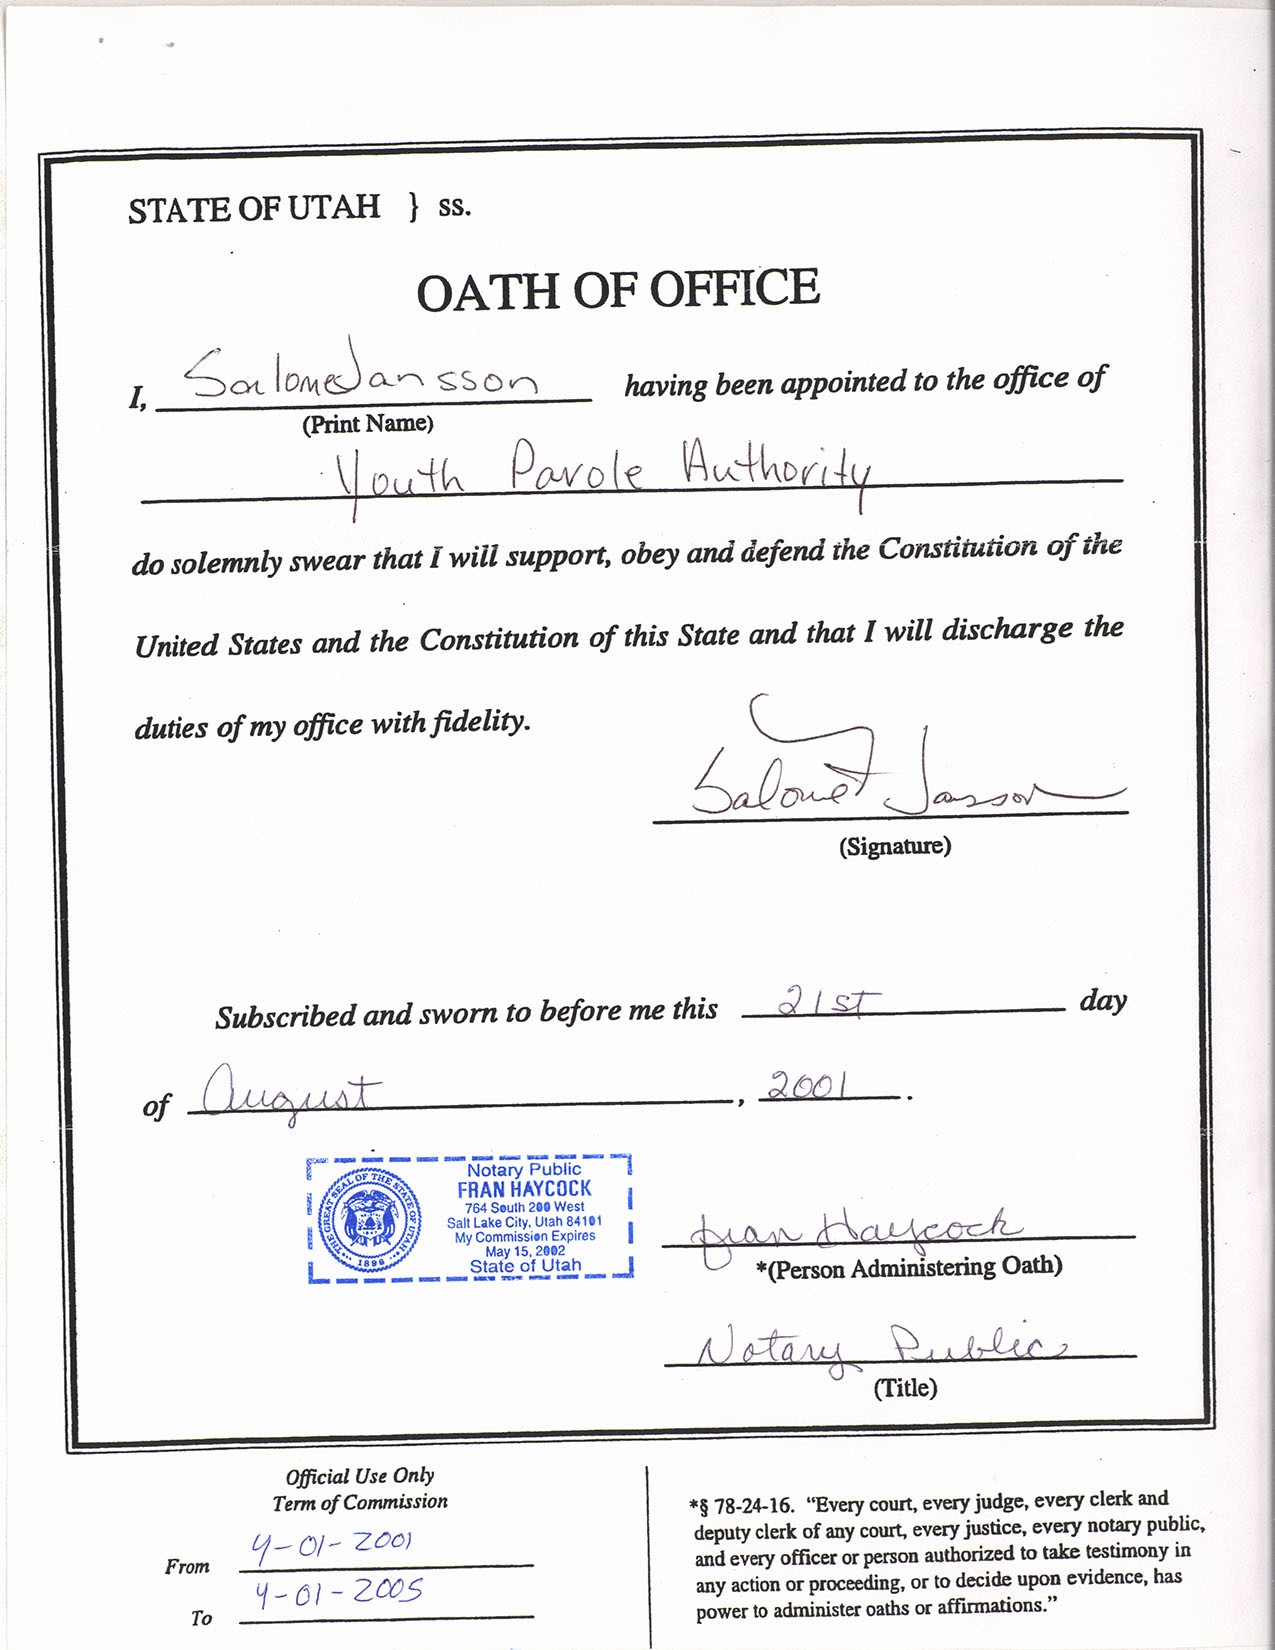 STATE OF UTAH } ss.
OATH OF OFFICE
I, Salome Jansson having been appointed to the office of
(Print Name)
Youth Parole Authority
do solemnly swear that I will support, obey and defend the Constitution of the
United States and the Constitution of this State and that I will discharge the
duties of my office with fidelity.
Salome Jansson
(Signature)
Subscribed and sworn to before me this 21st day
of August, 2001.
THE GREAT SEAL OF THE STATE OF UTAH
1896
Notary Public
FRAN HAYCOCK
764 South 200 West
Salt Lake City, Utah 84101
My Commission Expires
May 15, 2002
State of Utah
Fran Haycock
*(Person Administering Oath)
Notary Public
(Title)
Official Use Only
Term of Commission
From 4-01-2001
To 4-01-2005
*§ 78-24-16. “Every court, every judge, every clerk and
deputy clerk of any court, every justice, every notary public,
and every officer or person authorized to take testimony in
any action or proceeding, or to decide upon evidence, has
power to administer oaths or affirmations.”